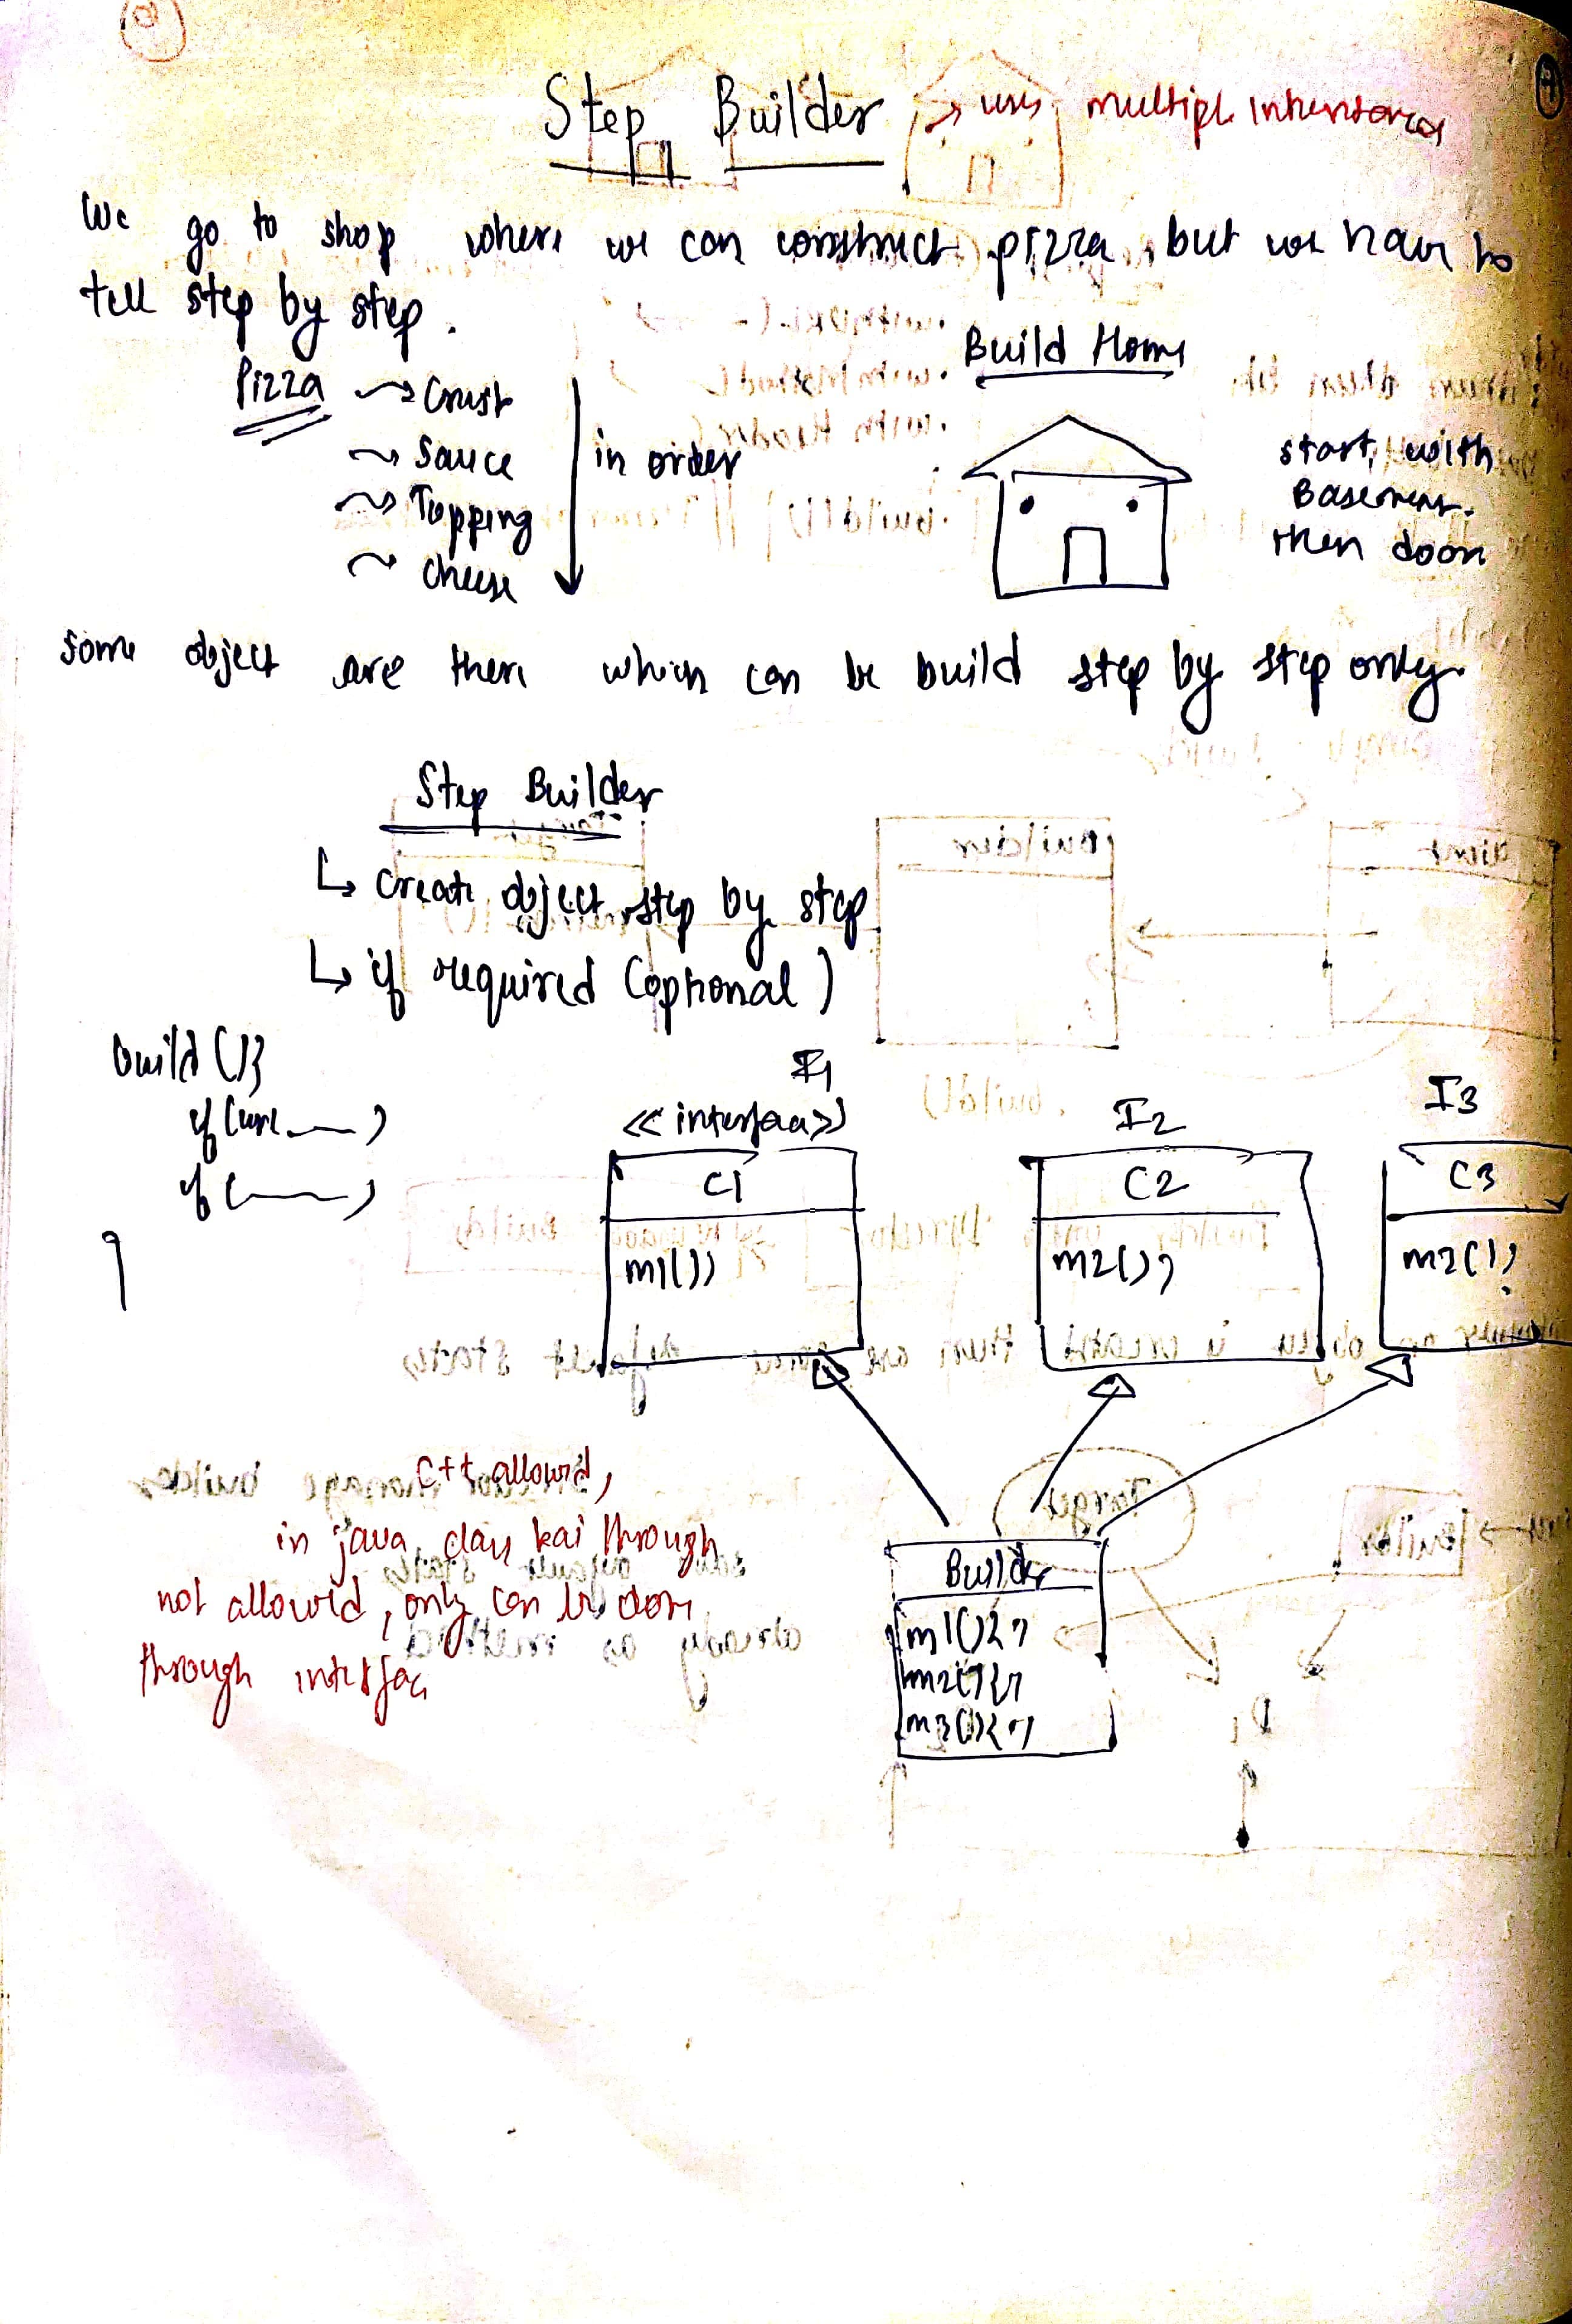 Step Builder → uses multiple inheritances
We go to shop where we can construct pizza, but we have to
tell step by step.
Pizza → Crust
→ Sauce
→ Topping
→ cheese
in order
Build Home
start with
Basement.
then door
some object are there which can be build step by step only.
Step Builder
↳ Create object step by step
↳ if required (optional)
build(){
if(url ___)
if(____)
}
I1
<<interface>>
C1
m1();
I2
C2
m2();
I3
C3
m2();
C++ allowed,
in java, class kai through
not allowed, only can be done
through interface
Builder
m1(){}
m2(){}
m3(){}